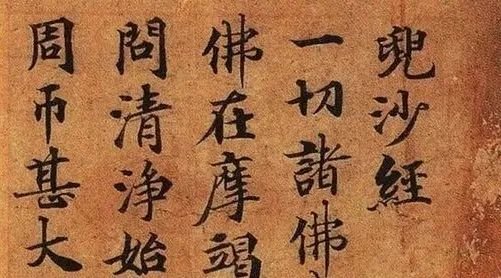 兜沙經
一切諸佛
佛在摩竭
問清淨始
周帀甚大